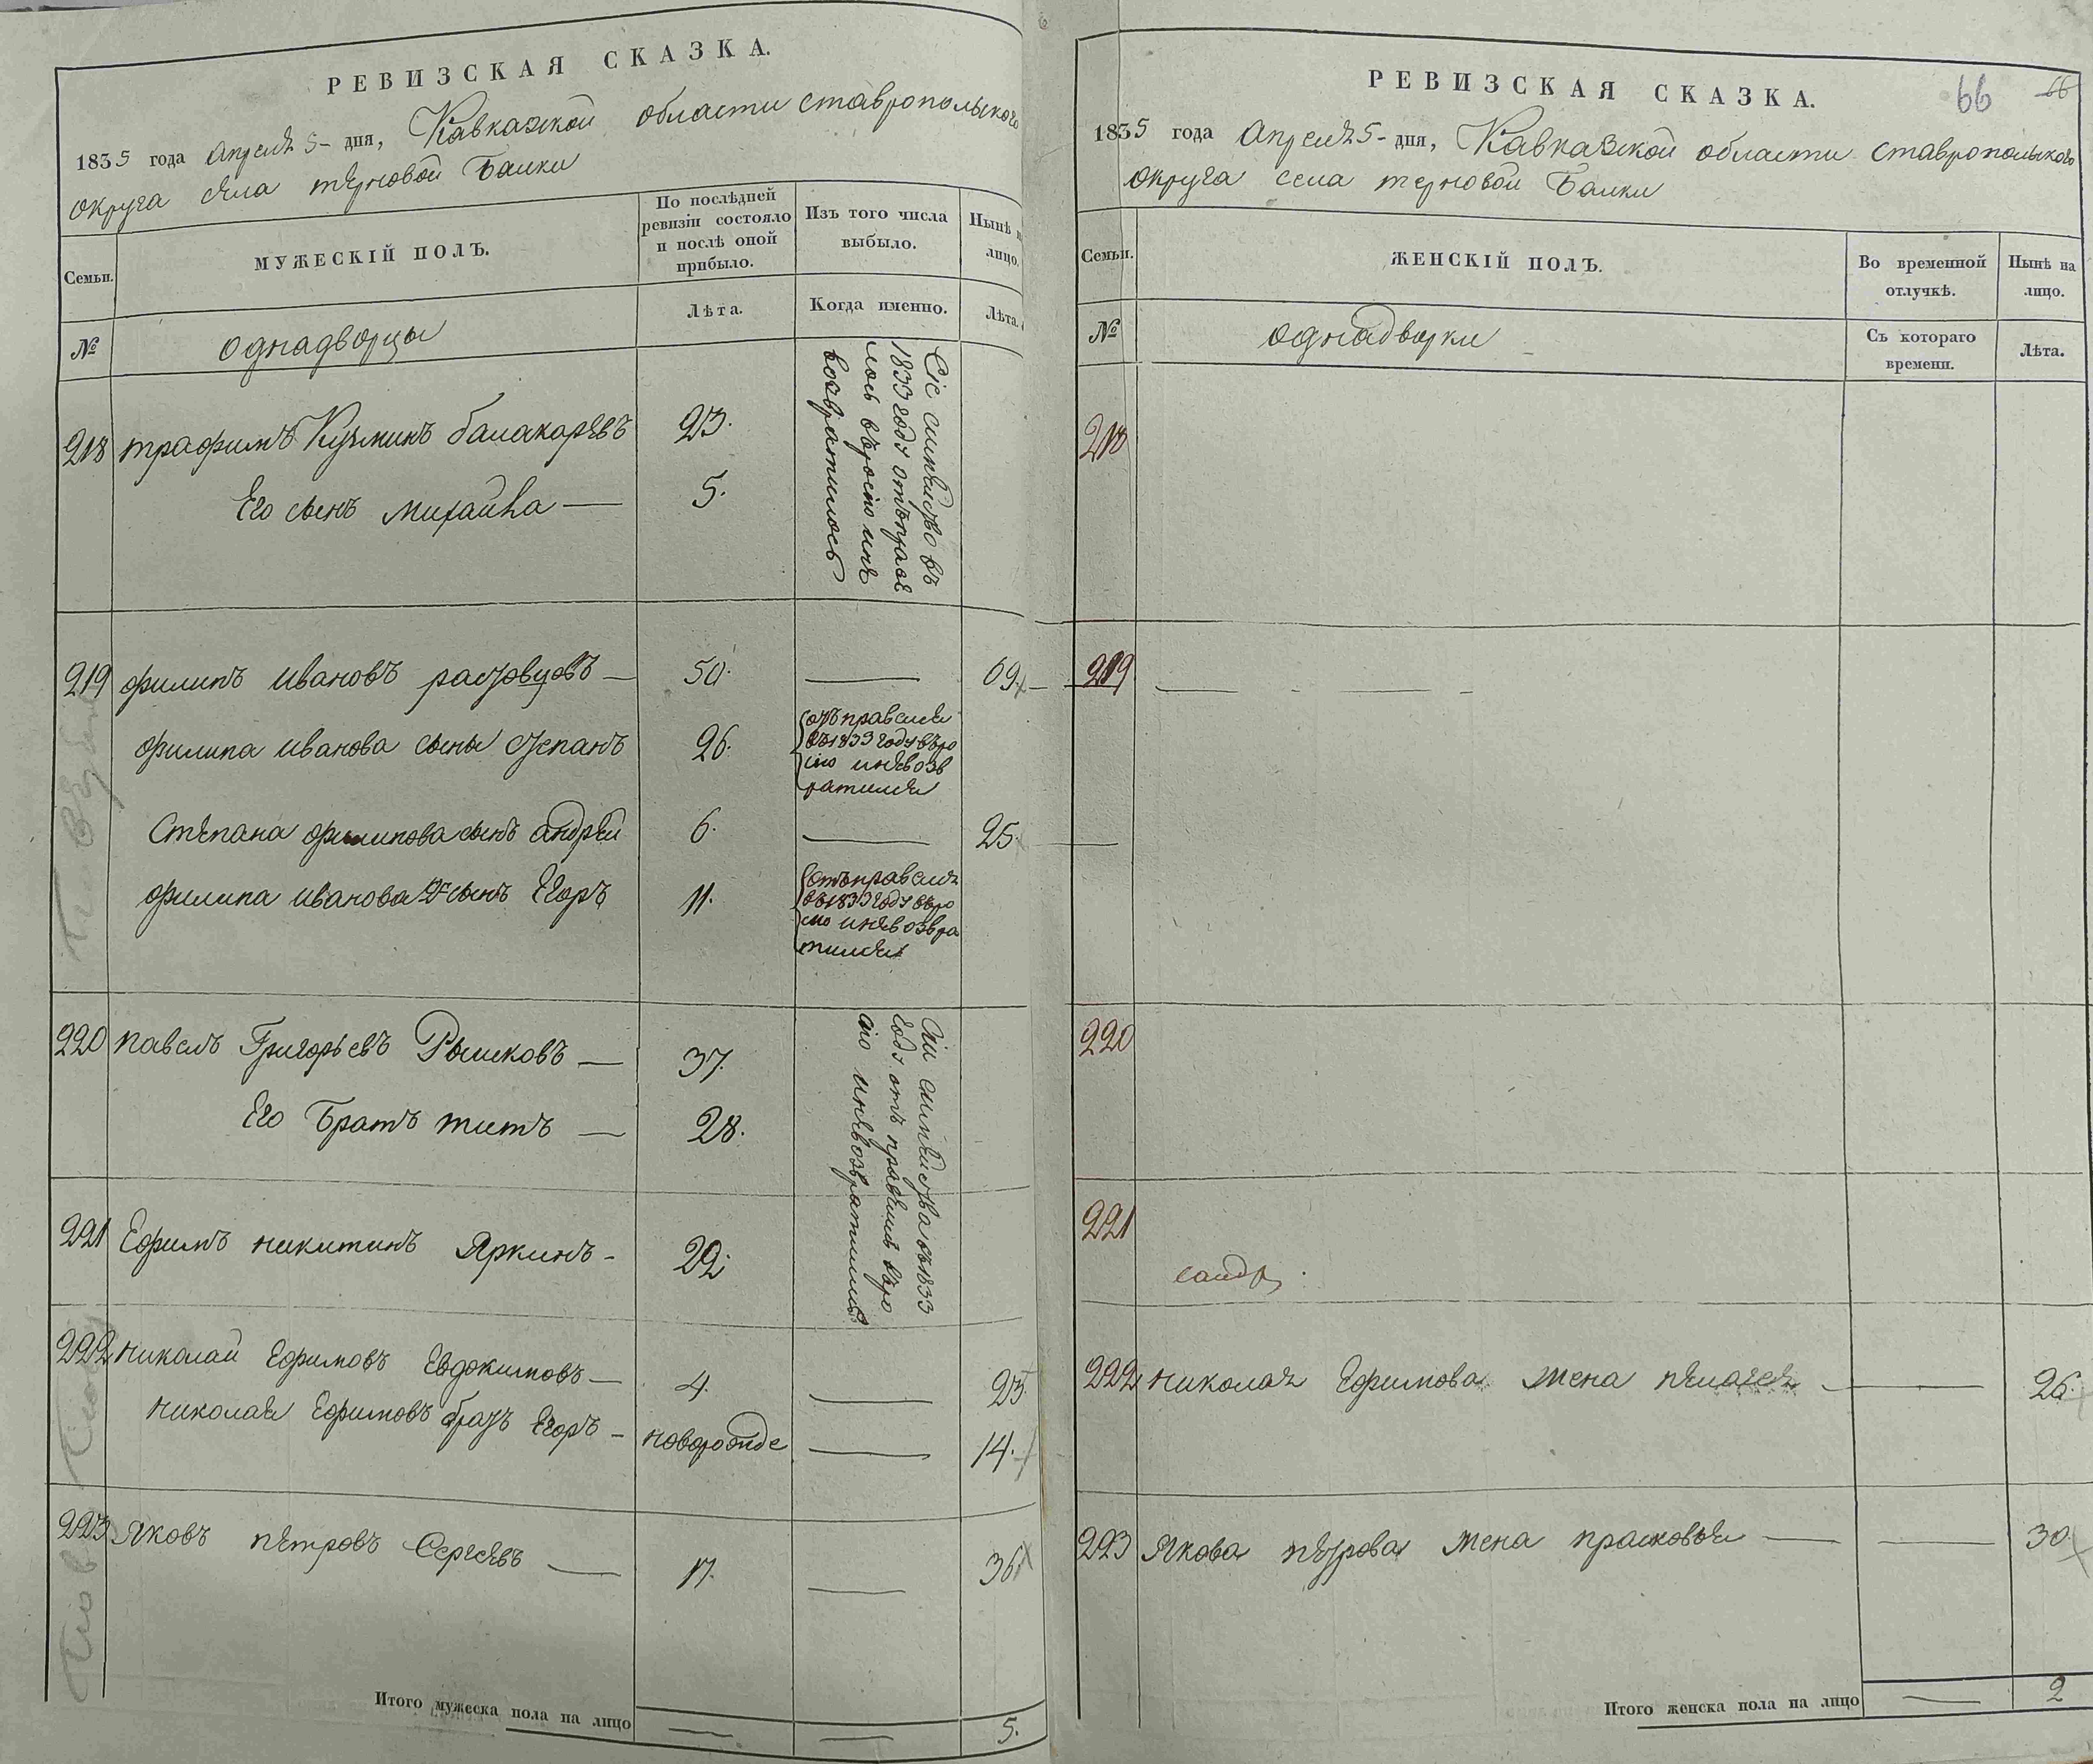 РЕВИЗСКАЯ СКАЗКА.
1835 года апреля 5- дня, Кавказкой области ставропольского
округа села терновой Балки
Семьи.
МУЖЕСКІЙ ПОЛЪ.
По послѣдней
ревизіи состояло
и послѣ оной
прибыло.
Изъ того числа
выбыло.
Нынѣ
лицо.
№
однадворцы
Лѣта.
Когда именно.
Лѣта.
218 трафимъ Кузминъ балакаревъ 23.
Его сынъ михайла — 5.
Сіе симейство въ
1833 году отправ
лось в
возвратилось
219 филипъ ивановъ растовцовъ — 50. — 69
филипа иванова сынъ степанъ 26.
отъправился
въ 1833 году въ
иневозв
ратился
Степана филипова сынъ андрей 6. — 25.
филипа иванова 2 сынъ Егоръ 11.
отъправился
въ 1833 году въ
иневозвра
тился
220 павелъ Григорьевъ Рышковъ — 37.
Его Братъ титъ — 28.
сіи симейства въ 1833
году отъ правились
иневозвратились
221 Ефимъ никитинъ Яркинъ - 22.
222 николай Ефимовъ Евдокимовъ — 4. — 23
николая Ефимовъ братъ Егоръ - новорожде — 14.
223 Яковъ петровъ Сергеевъ — 17. — 36
Итого мужеска пола на лицо — — 5.
66 66
РЕВИЗСКАЯ СКАЗКА.
1835 года апреля 5- дня, Кавказской области ставропольского
округа села терновой Балки
Семьи.
ЖЕНСКІЙ ПОЛЪ.
Во временной
отлучкѣ.
Нынѣ на
лицо.
№
однадворки
Съ котораго
времени.
Лѣта.
218
219
220
221
222 николая Ефимова жена пелагея — 26.
223 Якова петрова жена прасковья — — 30.
Итого женска пола на лицо — 2